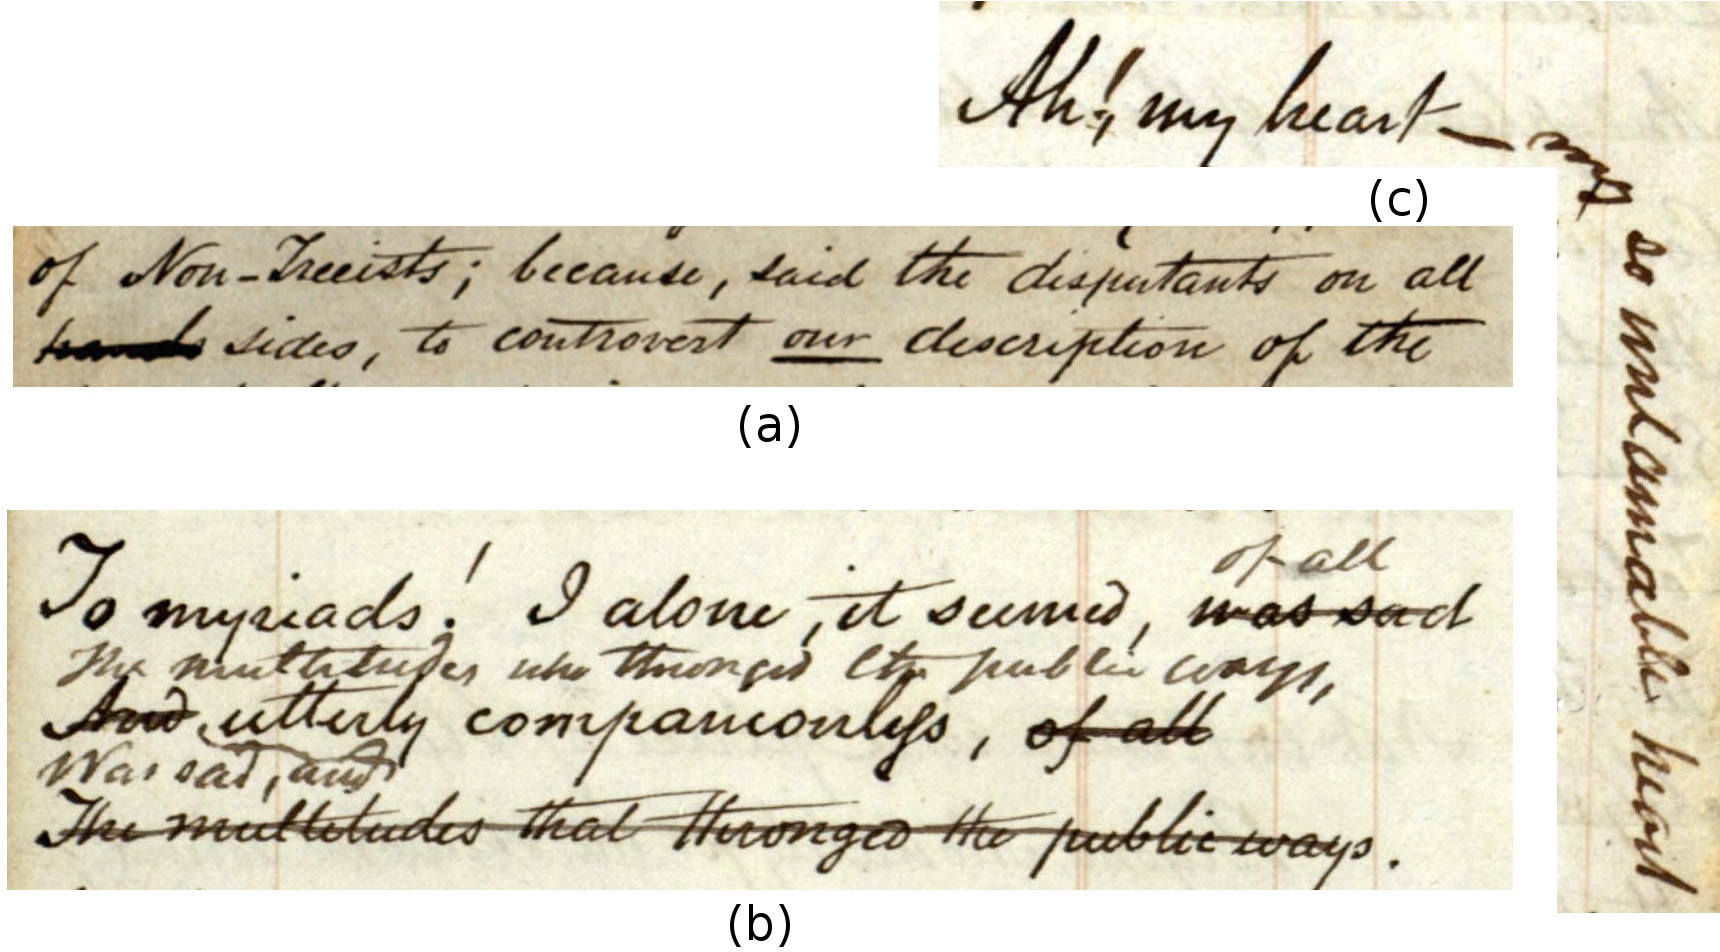 Ah! my heart — my
so untamable heart
(c)
of Non-Treeists; because, said the disputants on all
hands sides, to controvert our description of the
(a)
of all
To myriads! I alone, it seemed, was sad
The multitudes who thronged the public ways,
And utterly companionless, of all
Was sad, and
The multitudes that thronged the public ways.
(b)